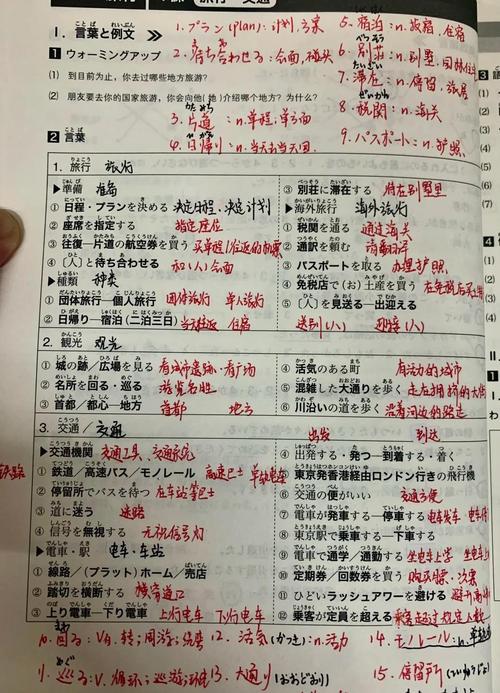 1. 言葉と例文 ≫
1. プラン (plan): 计划,方案
5. 宿泊: n. 投宿,住宿
1 ウォーミングアップ
2. 待ち合わせる: 会面,碰头
6. 別荘: n. 别墅
(1) 到目前为止,你去过哪些地方旅游?
7. 滞在: n. 停留,旅居
(2) 朋友要去你的国家旅游,你会向他(她)介绍哪个地方?为什么?
8. 税関: n. 海关
3. 片道: n. 单程,单方面
4. 日帰り: n. 当天去当天回
9. パスポート: n. 护照
2 言葉
1. 旅行 旅行
▶準備 准备
① 日程・プランを決める 决定日程・决定计划
② 座席を指定する 指定座位
③ 往復―片道の航空券を買う
④ (人)と待ち合わせる 和(人)会面
▶種類 种类
① 団体旅行―個人旅行 团体旅行 单人旅行
② 日帰り―宿泊(二泊三日) 当天往返 住宿
③ 別荘に滞在する 待在别墅里
▶海外旅行 海外旅行
① 税関を通る 通过海关
② 通訳を頼む 请翻译
③ パスポートを取る 办理护照
④ 免税店で(お)土産を買う
⑤ (人)を見送る―出迎える
送别(人) 迎接(人)
2. 観光 观光
① 城の跡/広場を見る 看城市遗迹・看广场
② 名所を回る・巡る 游览名胜
③ 首都/都心―地方 首都 地方
④ 活気のある町 有活力的城市
⑤ 混雑した大通りを歩く 走在拥挤的大街
⑥ 川沿いの道を歩く 沿着河边的路走
3. 交通/交通
▶交通機関 交通工具、交通系统
① 鉄道/高速バス/モノレール 高速巴士 单轨电车
② 停留所でバスを待つ 在车站等巴士
③ 道に迷う 迷路
④ 信号を無視する 无视信号灯
▶電車・駅 电车・车站
① 線路/(プラット)ホーム/売店
② 踏切を横断する 横穿道口
③ 上り電車―下り電車 上行电车 下行电车
出发 到达
④ 出発する・発つ―到着する・着く
⑤ 東京発香港経由ロンドン行きの飛行機
⑥ 交通の便がいい 交通方便
⑦ 電車が発車する―停車する 电车发车・电车停
⑧ 東京駅で乗車する―下車する
⑨ 電車で通学/通勤する 坐电车上学 坐电车上
⑩ 定期券/回数券を買う 购买月票、次票
⑪ ひどいラッシュアワーを避ける 避开高
⑫ 乗客が定員を超える 乘客超过规定人数
12. 活気 (かっき): n. 活力
14. モノレール: n. 单轨
11. 巡る: v. 循环;巡游
13. 大通り (おおどおり)
15. 停留所